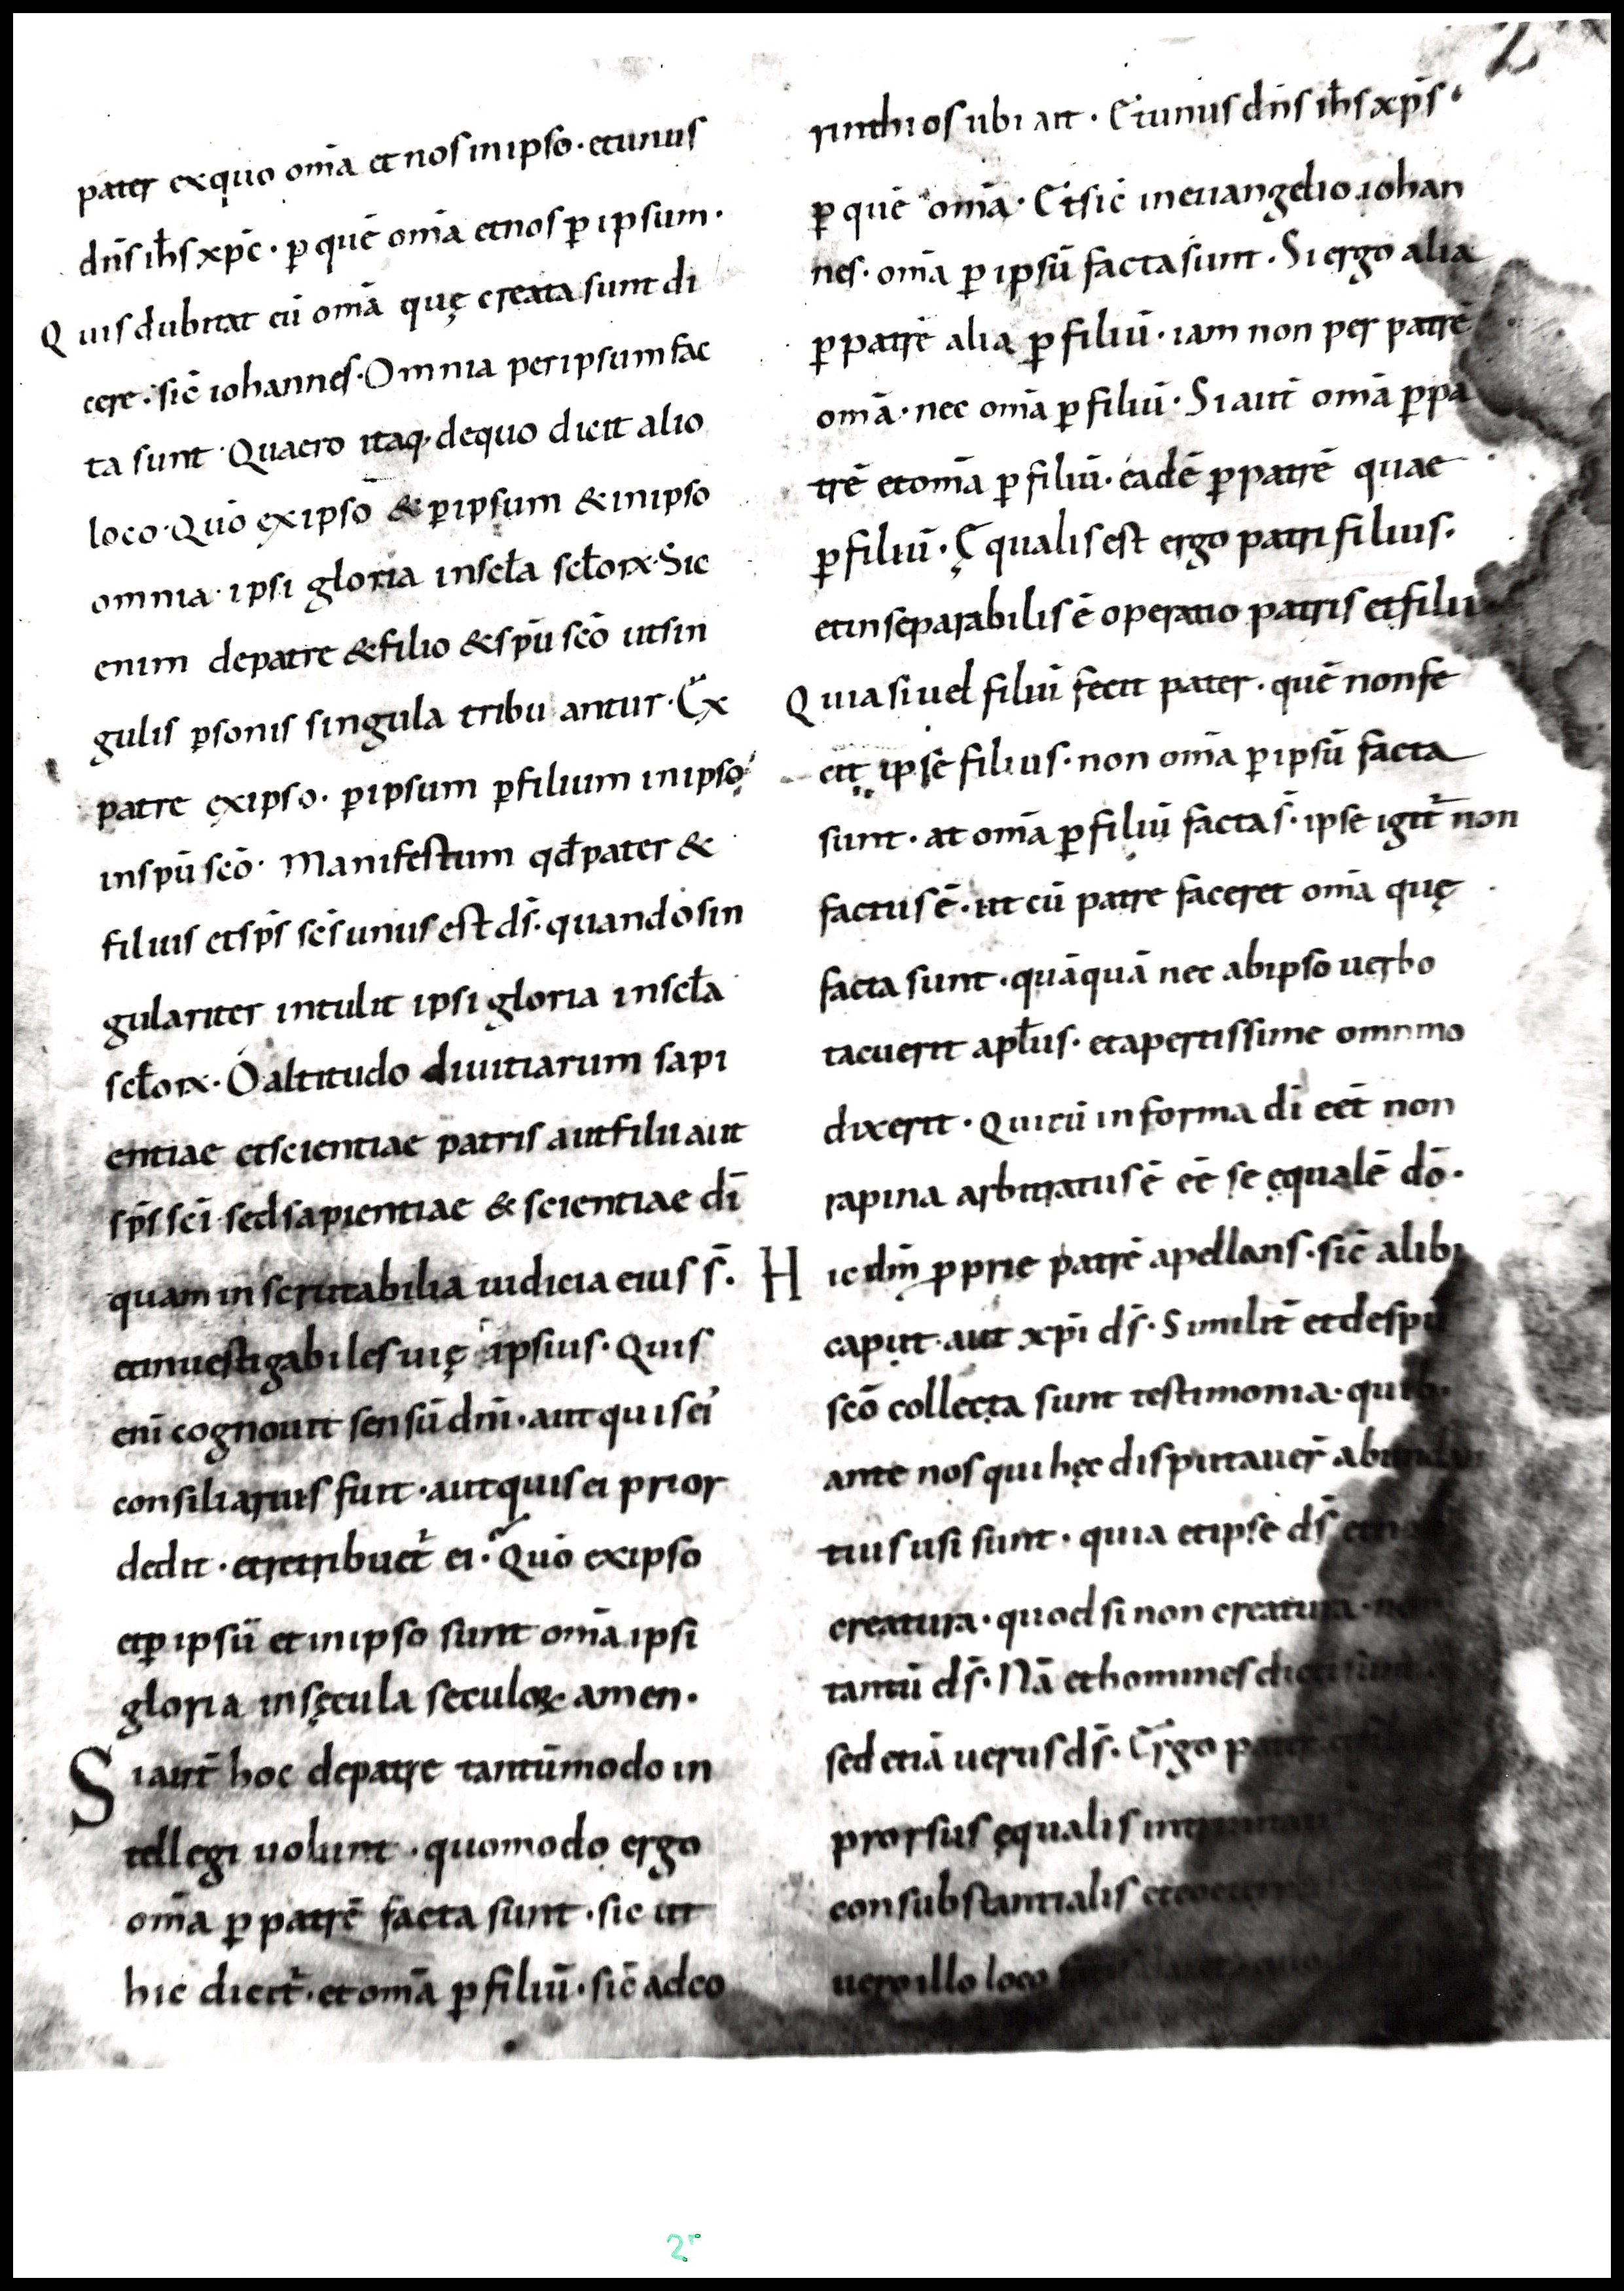 pater exquo om̄a et nos in ipso · et unus
dn̄s ih̄s xp̄c · ꝑ quē om̄a et nos ꝑ ipsum ·
Quis dubitat eū om̄a quę creata sunt di
cere · sic̄ iohannes · Omnia per ipsum fac
ta sunt · Quaero itaq· de quo dicit alio
loco · Quō ex ipso & ꝑ ipsum & in ipso
omnia · ipsi gloria in scl̄a scl̄orꝝ · Sic
enim de patre & filio & sp̄u sc̄o ut sin
gulis ꝑsonis singula tribuantur · Ex
patre ex ipso · ꝑ ipsum ꝑ filium in ipso
in sp̄u sc̄o · Manifestum qđ pater &
filius et sp̄s sc̄s unus est d̄s · quando sin
gulariter intulit ipsi gloria in scl̄a
scl̄orꝝ · O altitudo diuitiarum sapi
entiae et scientiae patris aut filii aut
sp̄s sc̄i sed sapientiae & scientiae dī
quam inscrutabilia iudicia eius s̄ ·
et inuestigabiles uię ipsius · Quis
enī cognouit sensū dn̄i · aut quis ei
consiliarius fuit · aut quis ei prior
dedit · et retribuet̄ ei · Quō ex ipso
et ꝑ ipsū et in ipso sunt om̄a ipsi
gloria in sęcula seculoꝝ amen ·
Si aut̄ hoc de patre tantūmodo in
tellegi uolunt · quomodo ergo
om̄a ꝑ patrē facta sunt · sic ut
hic dicit̄ · et om̄a ꝑ filiū · sic̄ ad co
rinthios ubi ait · Et unus dn̄s ih̄s xp̄s ·
ꝑ quē om̄a · Et sic̄ in euangelio iohan
nes · om̄a ꝑ ipsū facta sunt · Si ergo alia
ꝑ patrē alia ꝑ filiū · iam non per patrē
om̄a · nec om̄a ꝑ filiū · Si aut̄ om̄a ꝑ pa
trē et om̄a ꝑ filiū · eadē ꝑ patrē quae
ꝑ filiū · Ęqualis est ergo patri filius ·
et inseparabilis ē operatio patris et filii
Quia si uel filiū fecit pater · quē non fe
cit ipse filius · non om̄a ꝑ ipsū facta
sunt · at om̄a ꝑ filiū facta s̄ · ipse igit̄ non
factus ē · ut cū patre faceret om̄a quę
facta sunt · quāquā nec ab ipso uerbo
tacuerit apl̄us · et apertissime omnino
dixerit · Qui cū in forma dī eēt non
rapina arbitratus ē eē se ęqualē dō ·
Hic dm̄ ꝓprie patrē apellans · sic̄ alibi
caput aut̄ xp̄i d̄s · Similit̄ et de sp̄u
sc̄o collecta sunt testimonia · quib·
ante nos qui hęc disputauer̄ abundan
tius usi sunt · quia et ipse d̄s et n
creatura · quod si non creatura · non
tantū d̄s · Nā et homines dicti sunt
sed etiā uerus d̄s · Ergo patri
prorsus ęqualis
consubstantialis et coetern
uero illo loco
2
2r